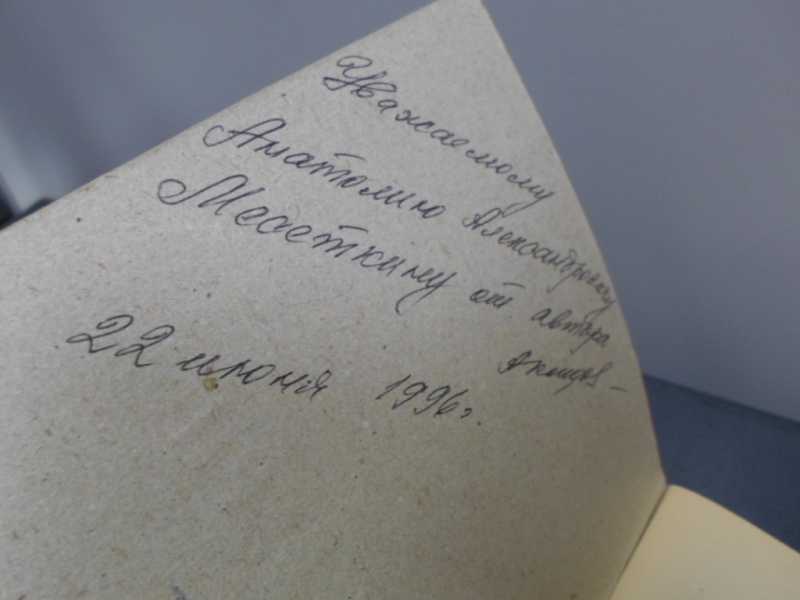 Уважаемому
Анатолию Александровичу
от автора
22 июня 1996г.